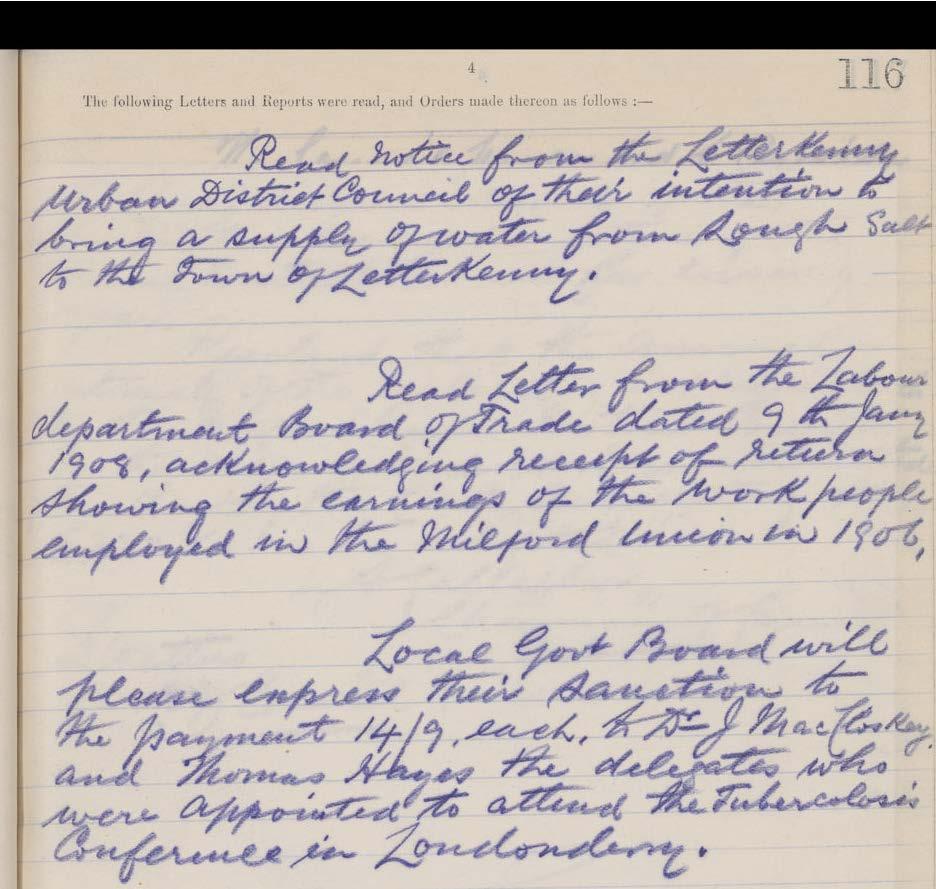 4
116
The following Letters and Reports were read, and Orders made thereon as follows :—
Read Notice from the Letterkenny
Urban District Council of their intention to
bring a supply of water from Lough Salt
to the Town of Letterkenny.
Read Letter from the Labour
department Board of Trade dated 9th Jany
1908, acknowledging receipt of return
showing the earnings of the work people
employed in the Milford Union in 1906,
Local Govt Board will
please express their sanction to
the payment 14/9, each, to Dr J MacCloskey,
and Thomas Hayes the delegates who
were appointed to attend the Tubercolosis
Conference in Londonderry.